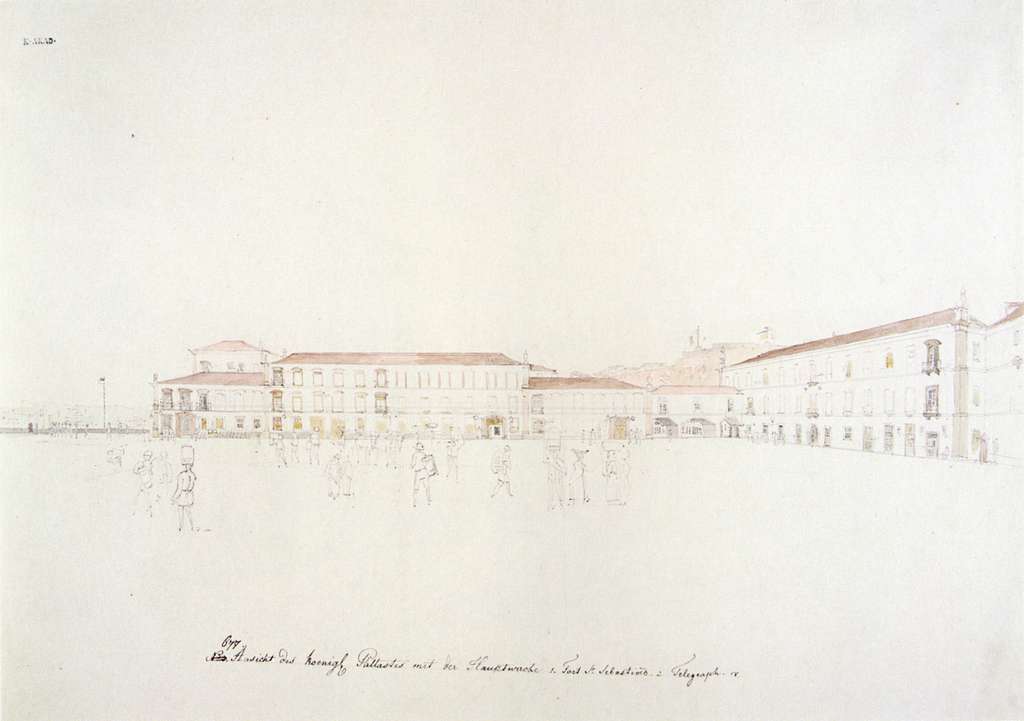 K. AKAD.
677
Ansicht des Koenigl Pallastes mit der Hauptwache 1. Fort St Sebastino 2 Telegraph.